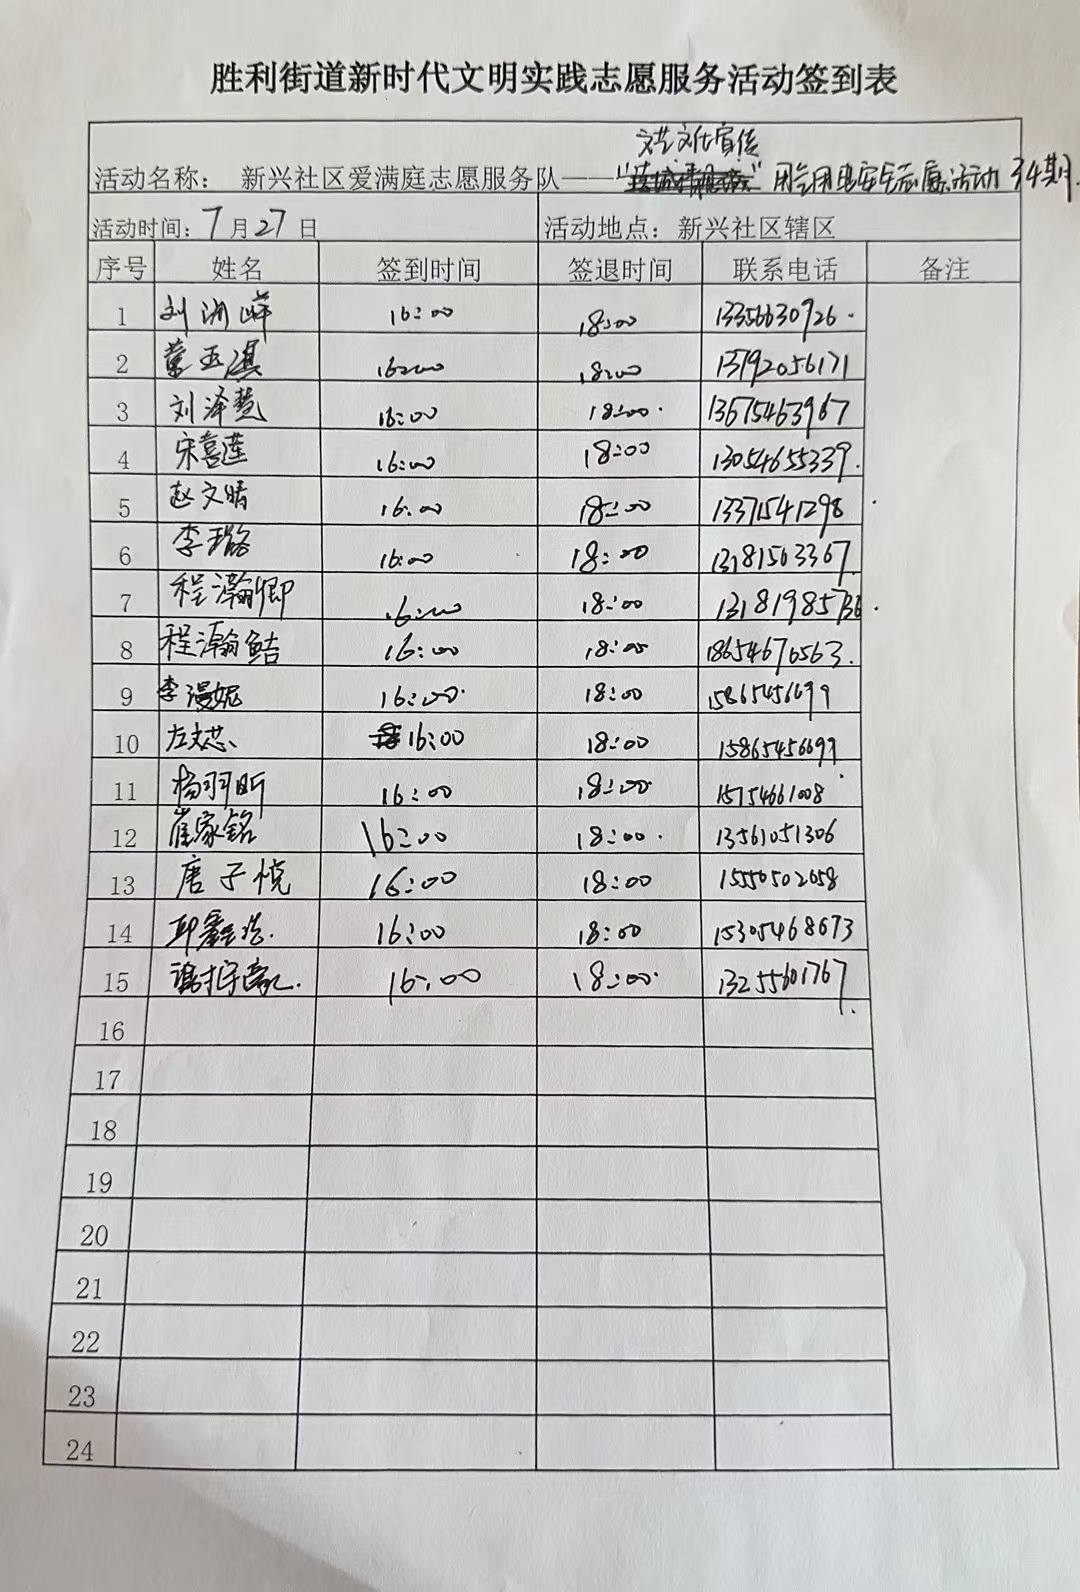 胜利街道新时代文明实践志愿服务活动签到表
文艺文化宣传
活动名称： 新兴社区爱满庭志愿服务队——“ ” 用气用电安全志愿活动34期.
活动时间：7月27日 活动地点：新兴社区辖区
序号 姓名 签到时间 签退时间 联系电话 备注
1 刘洲峄 16:00 18:00 13356630926.
2 董玉淇 16:00 18:00 13792056171
3 刘泽慧 16:00 18:00. 13675463967
4 宋喜莲 16:00 18:00 13054655339.
5 赵文晴 16:00 18:00 13371541298
6 李璐 16:00 18:00 13181563367
7 程瀚卿 16:00 18:00 13181985736.
8 程瀚鲒 16:00 18:00 18654670563.
9 李漫妮 16:00. 18:00 15865456699
10 左文芯、 16:00 18:00 15865456699
11 杨羽昕 16:00 18:00. 15154661008
12 崔家铭 16:00 18:00. 13561051306
13 唐子悦 16:00 18:00 15550502658
14 邱鑫 16:00 18:00 15305468673
15 16:00 18:00. 13255601767.
16
17
18
19
20
21
22
23
24